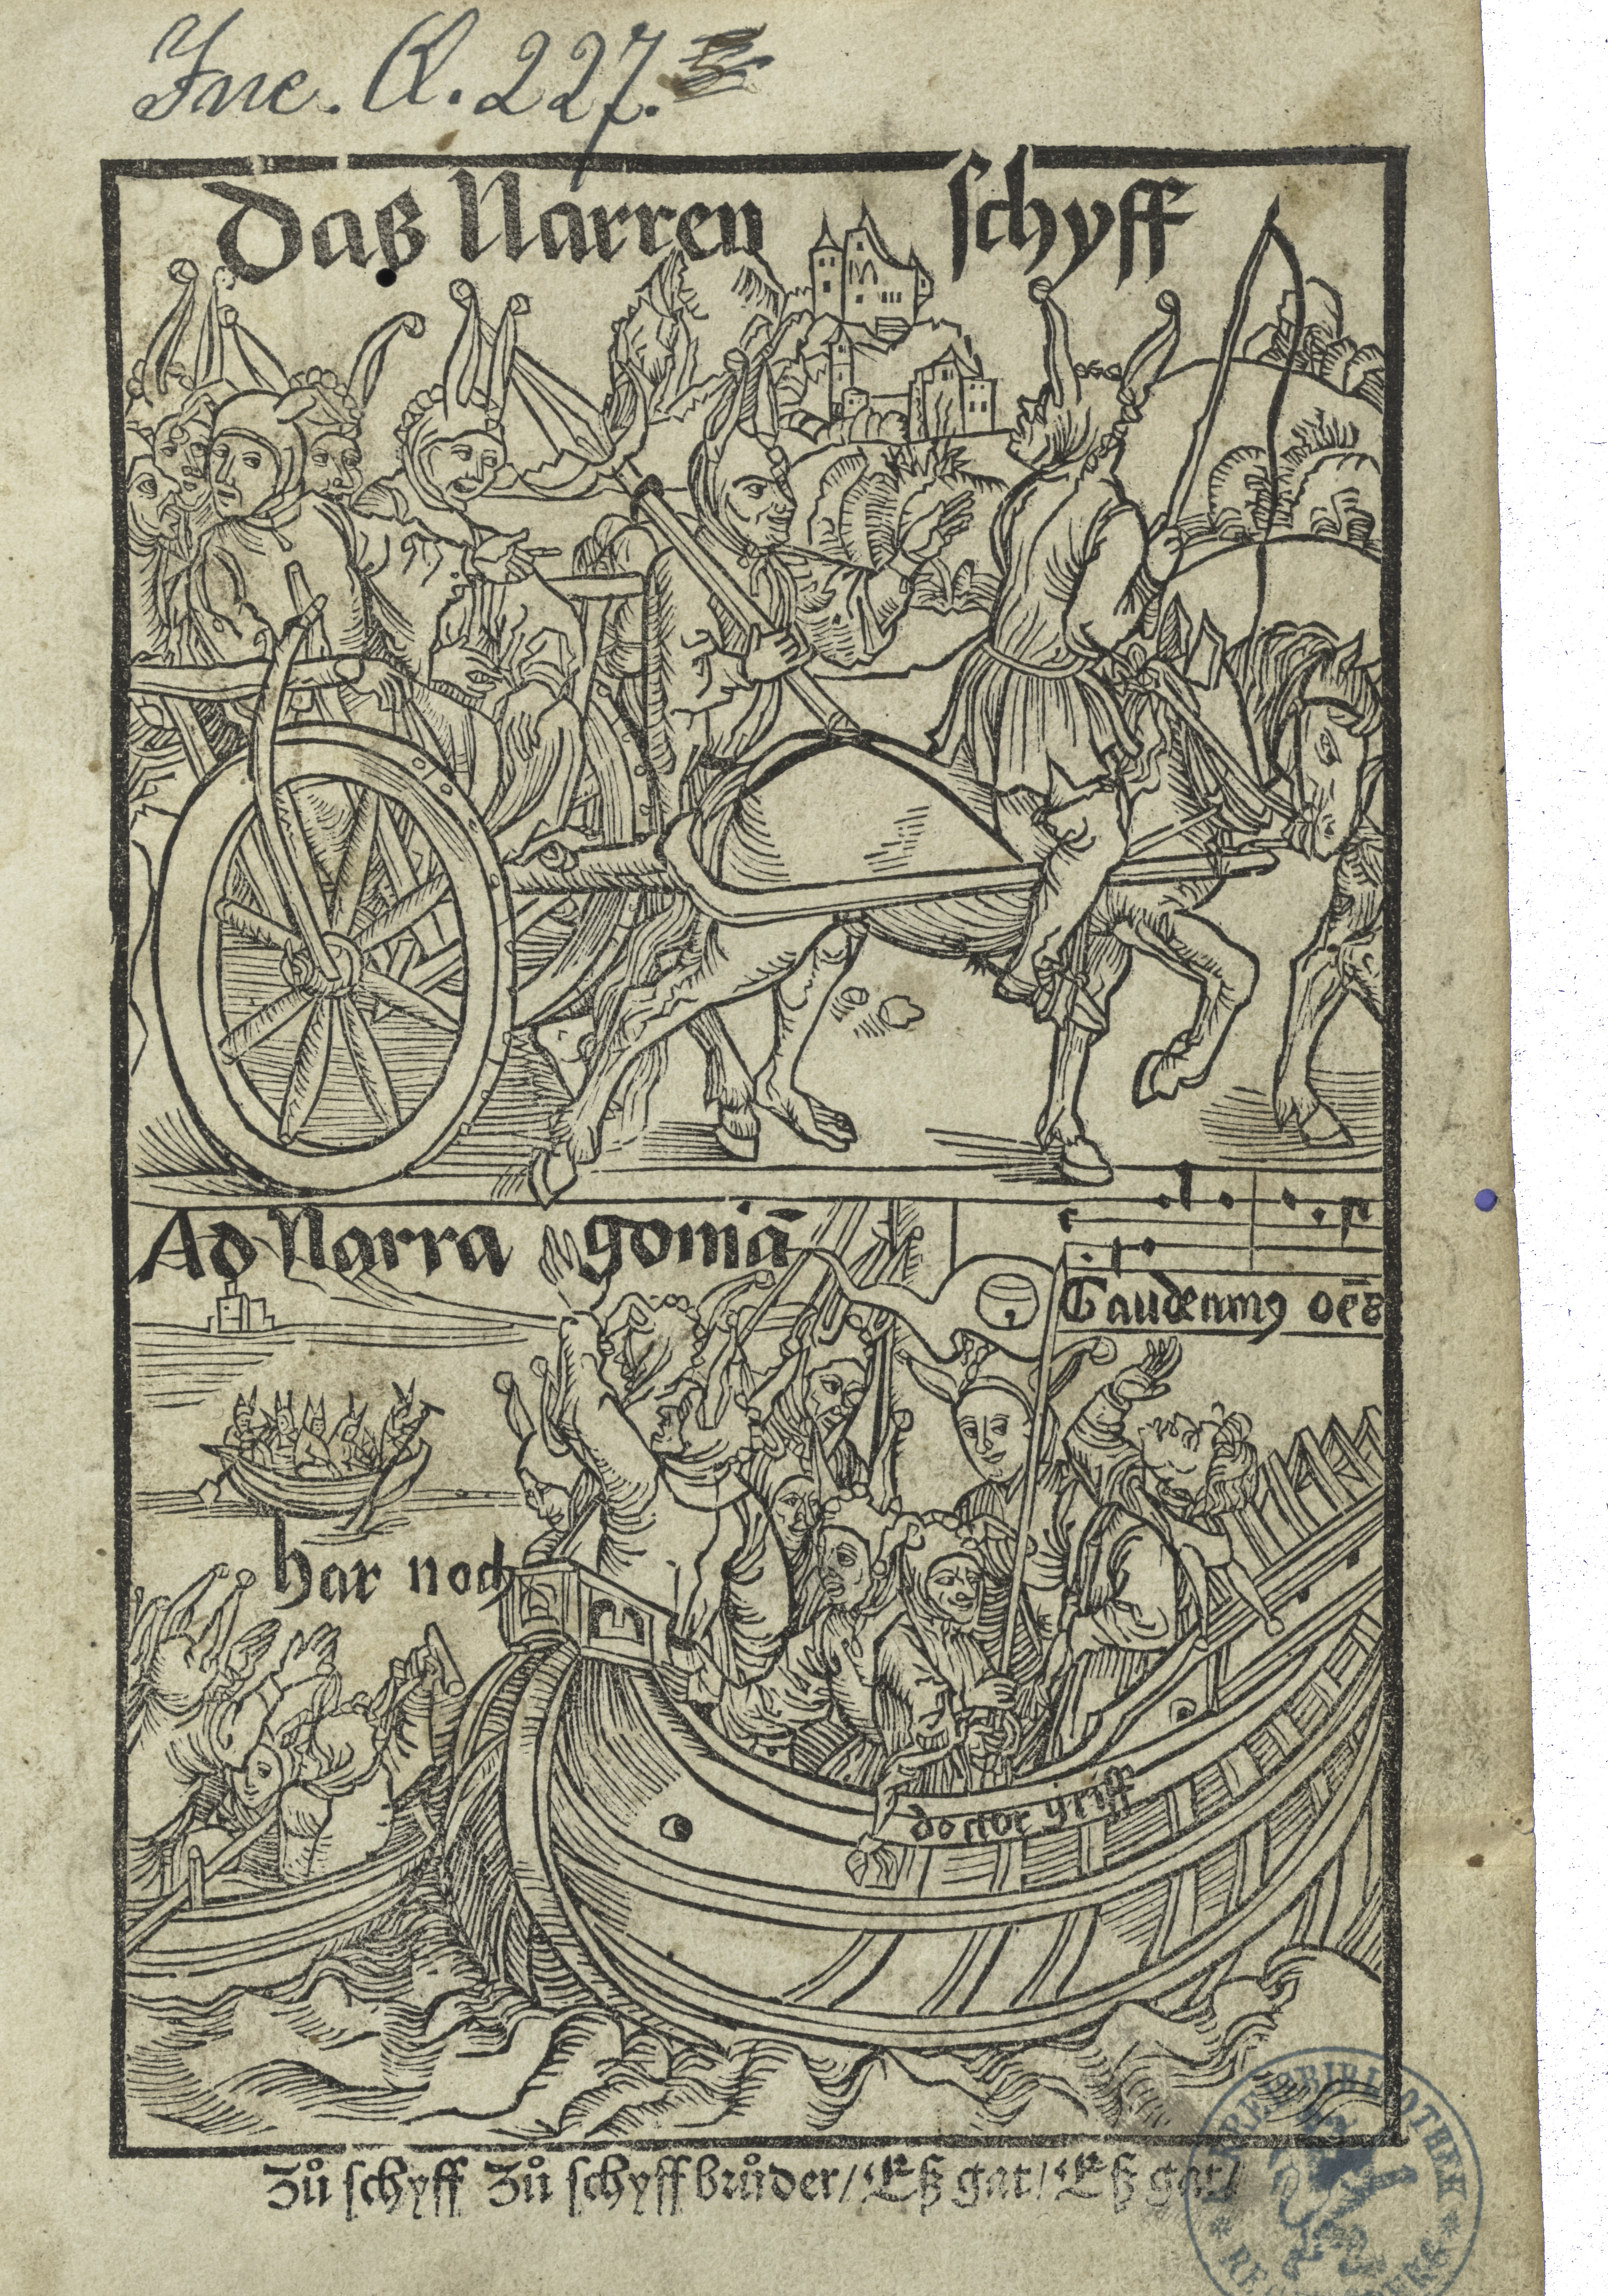 Inc. R. 227.
Das Narren schyff
Ad Narra goniā
Gaudeamꝰ oēs
har noch
doctor griff
Zů schyff Zů schyff brůder/ Eß gat/ Eß gat/
KREISBIBLIOTHEK